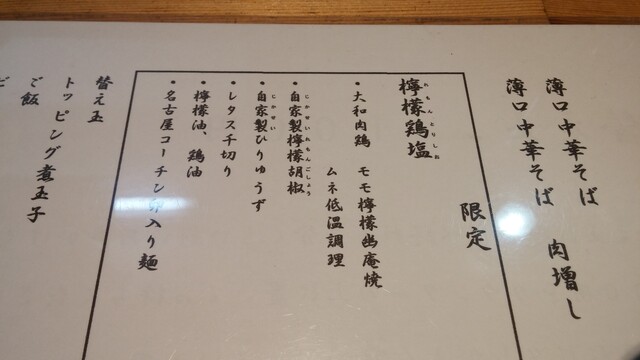 薄口中華そば
薄口中華そば 肉増し
限定
檸檬鶏塩
れもんとりしお
・大和肉鶏 モモ檸檬幽庵焼
ムネ低温調理
・自家製檸檬胡椒
じかせいれもんこしょう
・自家製ひりゅうず
じかせい
・レタス千切り
・檸檬油、鶏油
・名古屋コーチン卵入り麺
替え玉
トッピング煮玉子
ご飯
ビ